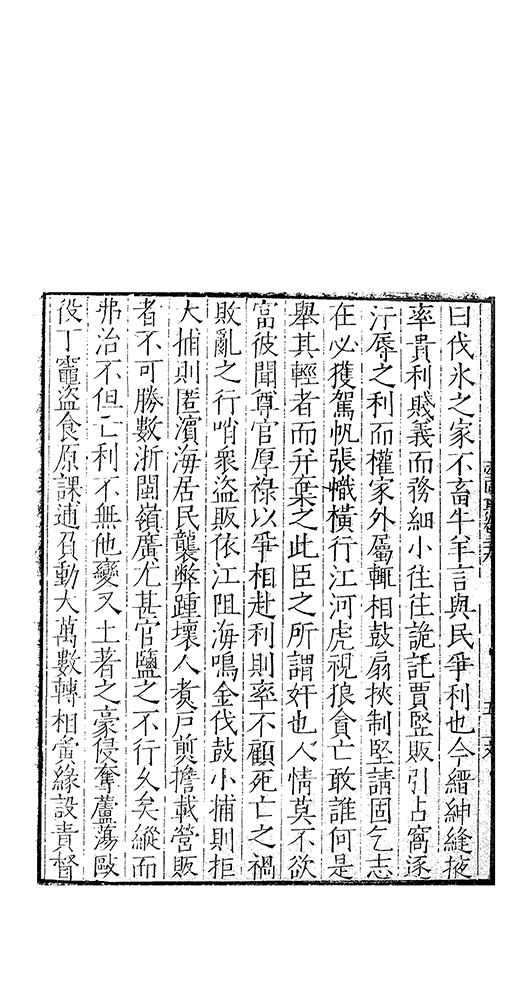 曰伐氷之家不畜牛羊言與民爭利也今縉紳縫掖
率貴利賤義而務細小往往詭託賈豎販引占窩逐
汙辱之利而權家外屬輒相鼓扇挾制堅請固乞志
在必獲駕帆張幟橫行江河虎視狼貪亡敢誰何是
舉其輕者而弁棄之此臣之所謂奸也人情莫不欲
富彼聞尊官厚祿以爭相赴利則率不顧死亡之禍
敗亂之行哨衆盜販依江阻海鳴金伐鼓小捕則拒
大捕則匿濱海居民襲弊踵壞人煑戸煎擔載營販
者不可勝數浙閩嶺廣尤甚官鹽之不行久矣縱而
弗治不但亡利不無他變又土著之豪侵奪蘆蕩敺
役丁竈盜食原課逋負動大萬數轉相夤緣設責督